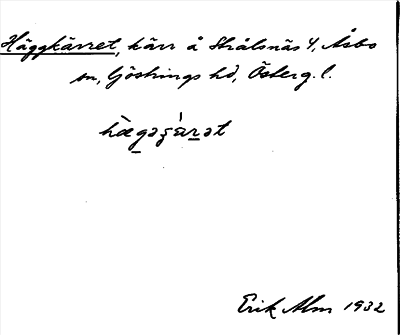 Häggkärret, kärr å Strålsnäs 4, Åsbo
sn, Göstrings hd, Österg. l.
hæ̀gəʒæ̀rət
Erik Alm 1932